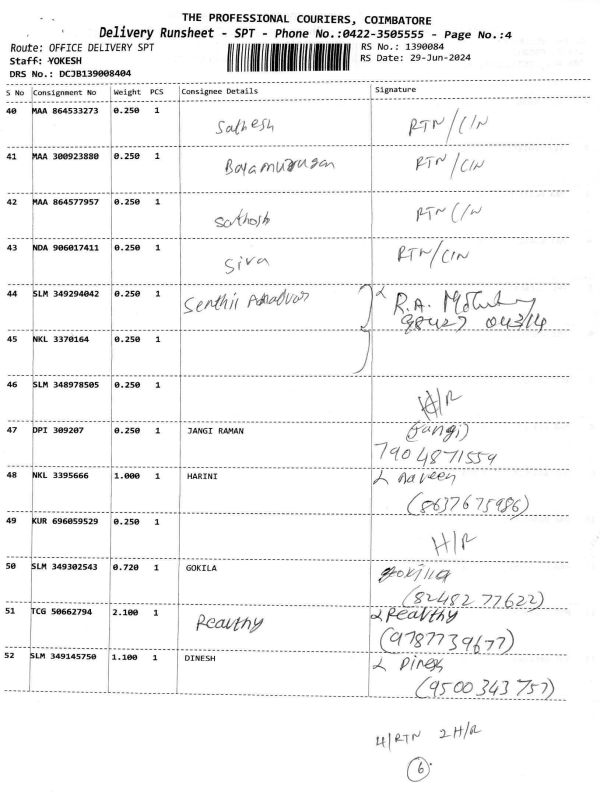 THE PROFESSIONAL COURIERS, COIMBATORE
Delivery Runsheet - SPT - Phone No.:0422-3505555 - Page No.:4
Route: OFFICE DELIVERY SPT
RS No.: 1390084
Staff: YOKESH
RS Date: 29-Jun-2024
DRS No.: DCJB139008404
S No Consignment No Weight PCS Consignee Details Signature
40 MAA 864533273 0.250 1
Sathesh RTN/CIN
41 MAA 300923880 0.250 1
Balamurugan RTN/CIN
42 MAA 864577957 0.250 1
Sathosh RTN C/N
43 NDA 906017411 0.250 1
Siva RTN/CIN
44 SLM 349294042 0.250 1
Senthil R.A.
98427 04314
45 NKL 3370164 0.250 1
46 SLM 348978505 0.250 1
H/R
47 DPI 309207 0.250 1 JANGI RAMAN (Jangi)
7904871559
48 NKL 3395666 1.000 1 HARINI naveen
(8637675986)
49 KUR 696059529 0.250 1
H/R
50 SLM 349302543 0.720 1 GOKILA gokilla
(82482 77622)
51 TCG 50662794 2.100 1 Reavthy Reavthy
(9787739677)
52 SLM 349145750 1.100 1 DINESH Dinesh
(9500343757)
4/RTN 2 H/R
6